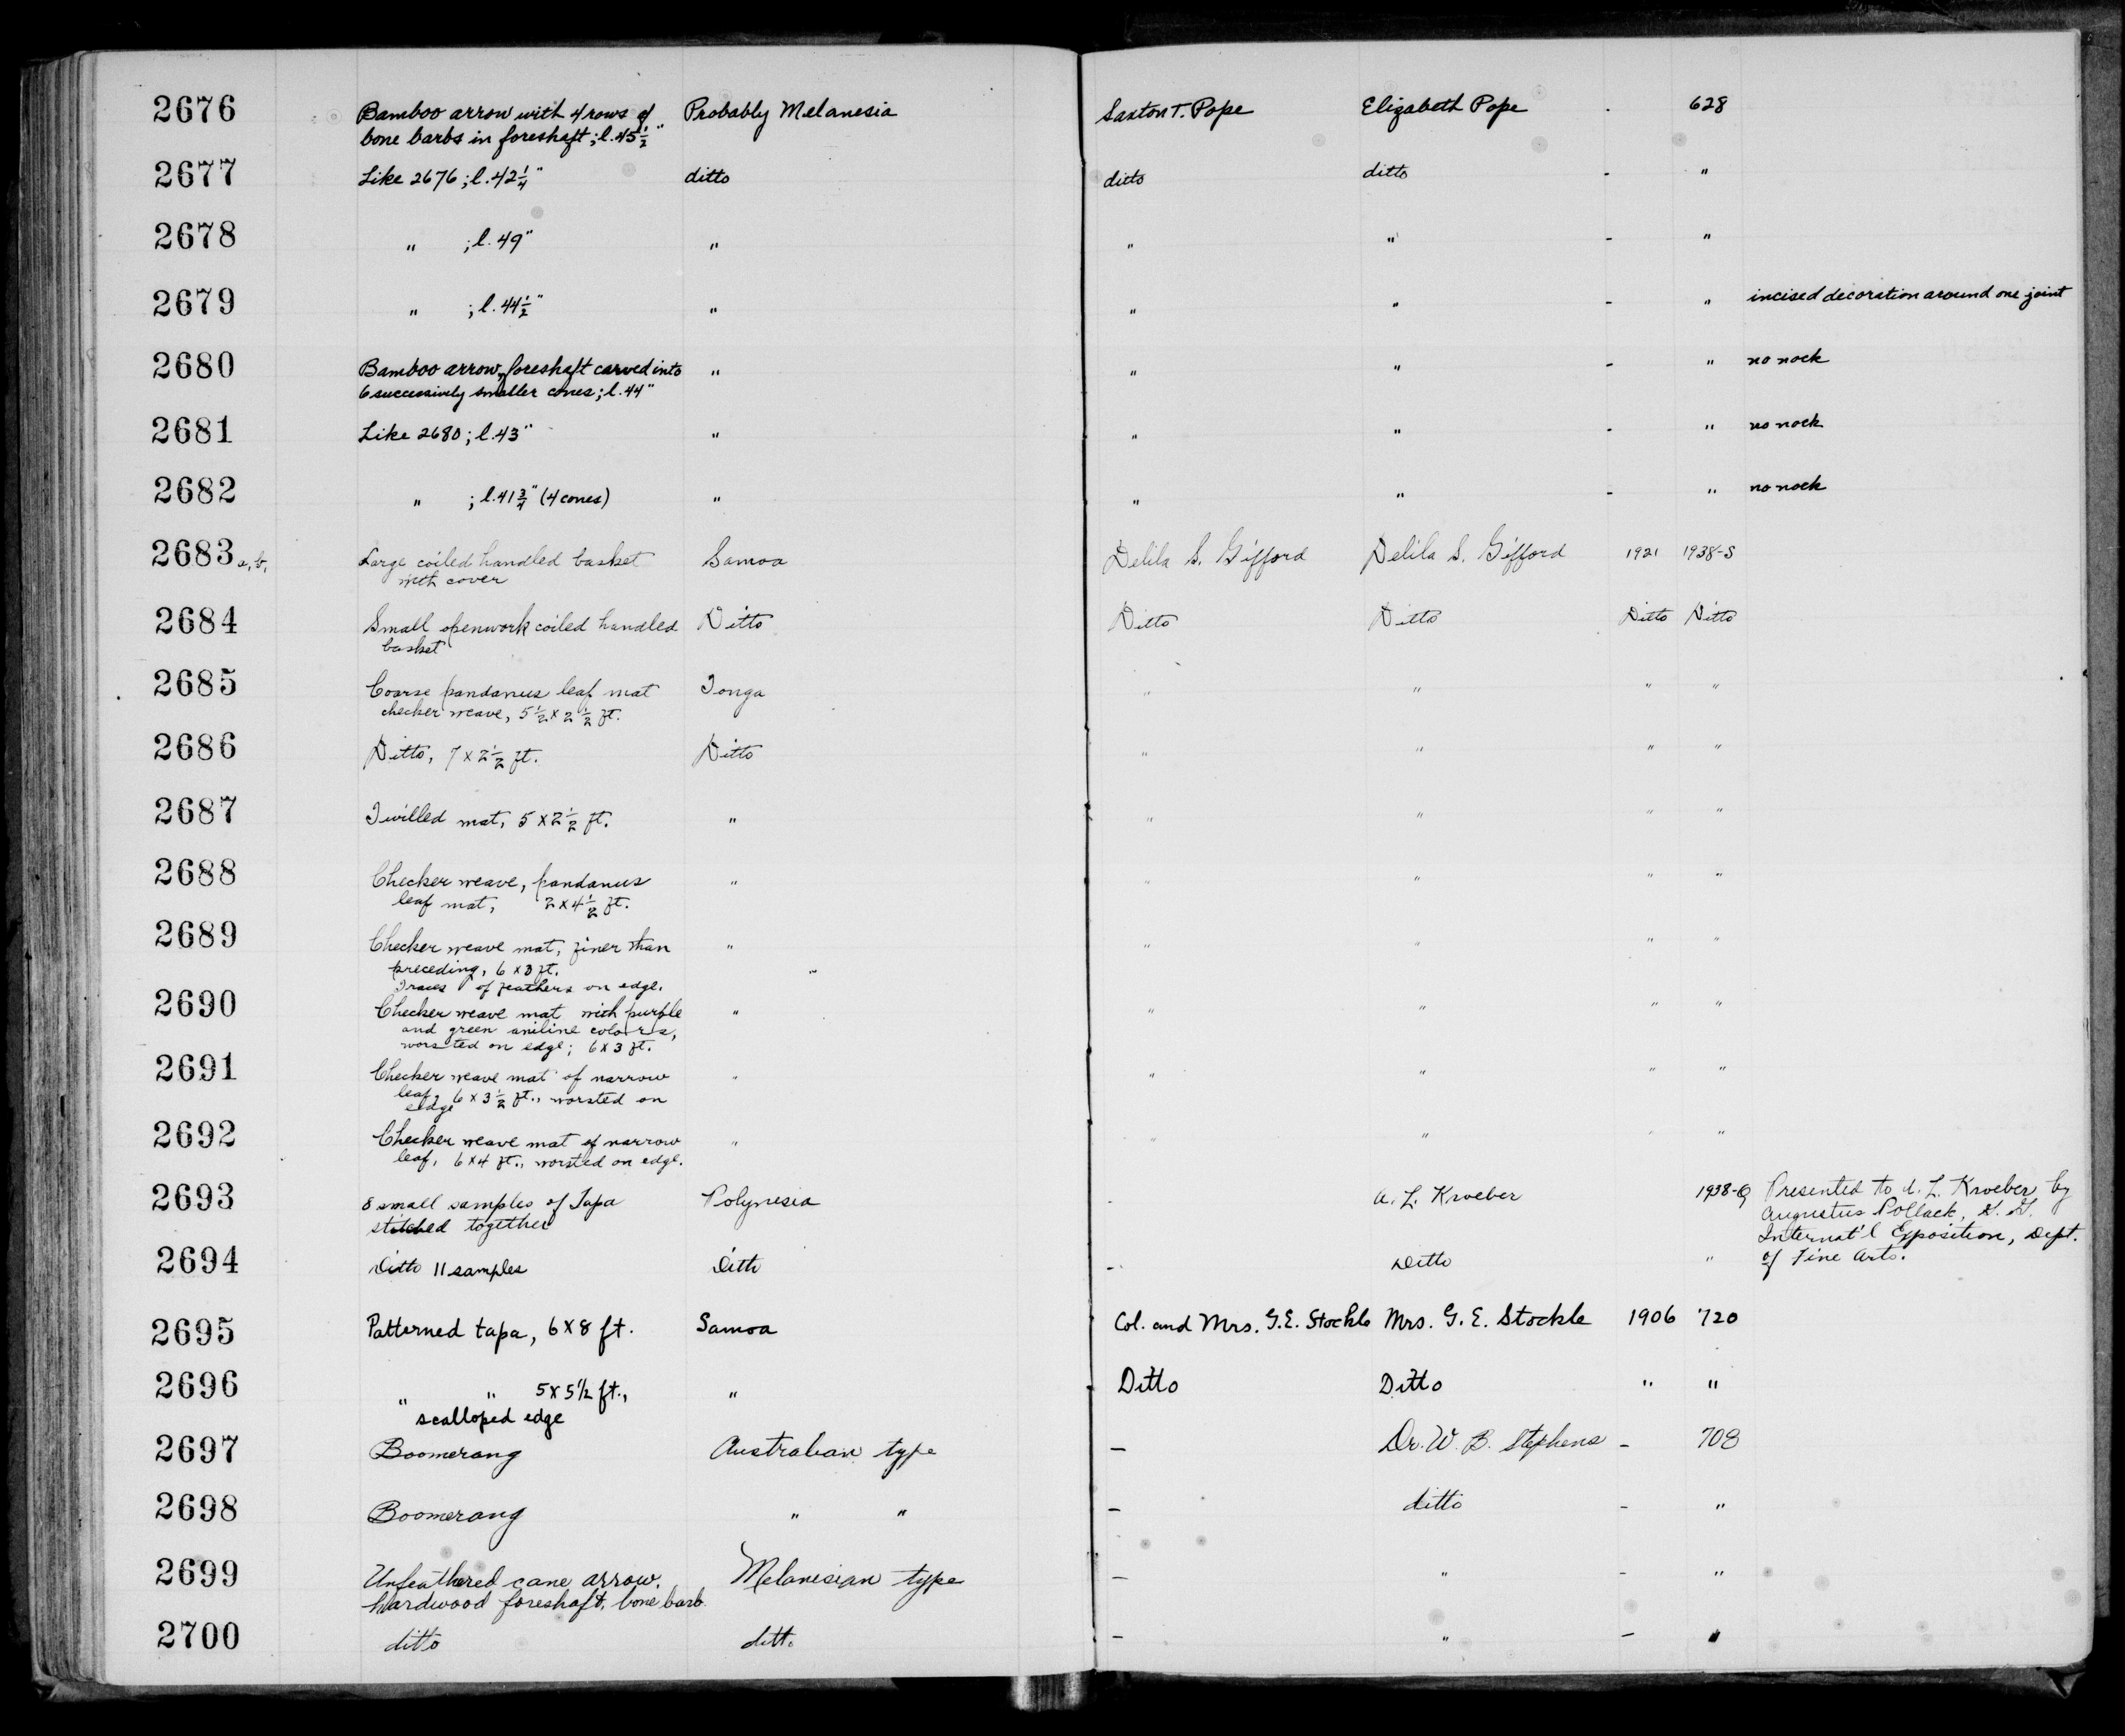 2676 Bamboo arrow with 4 rows of Probably Melanesia Saxton T. Pope Elizabeth Pope - 628
bone barbs in foreshaft; l. 45 1/2"
2677 Like 2676; l. 42 1/4" ditto ditto ditto - "
2678 " ; l. 49" " " " - "
2679 " ; l. 44 1/2" " " " - " incised decoration around one joint
2680 Bamboo arrow, foreshaft carved into " " " - " no nock
6 successively smaller cones; l. 44"
2681 Like 2680; l. 43" " " " - " no nock
2682 " ; l. 41 3/4" (4 cones) " " " - " no nock
2683 a, b, Large coiled handled basket Samoa Delila S. Gifford Delila S. Gifford 1921 1938-S
with cover
2684 Small openwork coiled handled Ditto Ditto Ditto Ditto Ditto
basket
2685 Coarse pandanus leaf mat Tonga " " " "
checker weave, 5 1/2 x 2 1/2 ft.
2686 Ditto, 7 x 2 1/2 ft. Ditto " " " "
2687 Twilled mat, 5 x 2 1/2 ft. " " " " "
2688 Checker weave, pandanus " " " " "
leaf mat, 2 x 4 1/2 ft.
2689 Checker weave mat, finer than " " " " "
preceding, 6 x 3 ft.
Traces of feathers on edge.
2690 Checker weave mat with purple " " " " "
and green aniline colors,
worsted on edge; 6 x 3 ft.
2691 Checker weave mat of narrow " " " " "
leaf, 6 x 3 1/2 ft., worsted on
edge
2692 Checker weave mat of narrow " " " " "
leaf, 6 x 4 ft., worsted on edge.
2693 8 small samples of Tapa Polynesia - A. L. Kroeber 1938-Q Presented to A. L. Kroeber by
stitched together Augustus Pollack,
Internat'l Exposition, Dept.
2694 Ditto 11 samples Ditto - Ditto " of Fine Arts.
2695 Patterned tapa, 6 X 8 ft. Samoa Col. and Mrs. G.E. Stockle Mrs. G. E. Stockle 1906 720
2696 " " 5 x 5 1/2 ft., " Ditto Ditto " "
scalloped edge
2697 Boomerang Australian type - Dr. W. B. Stephens - 708
2698 Boomerang " " - ditto - "
2699 Unfeathered cane arrow, Melanesian type - " - "
hardwood foreshaft, bone barb.
2700 ditto ditto - " - "